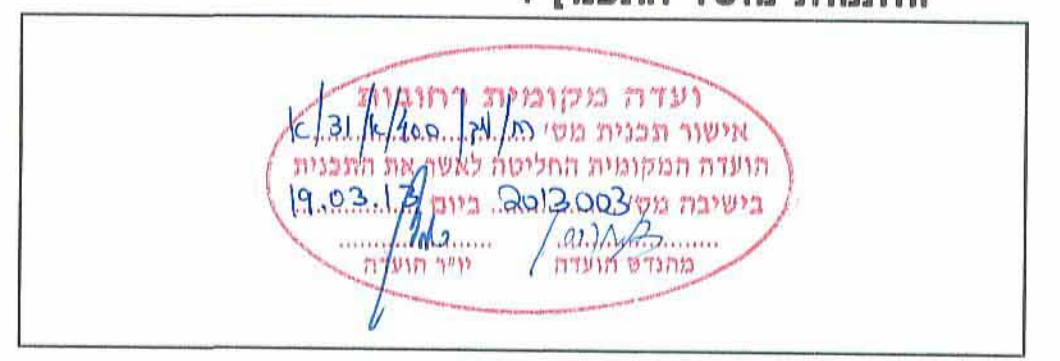 ועדה מקומית רחובות
אישור תכנית מס' רח/מק/400/א/31/א
הועדה המקומית החליטה לאשר את התכנית
בישיבה מס' 2013003 ביום 19.03.13
מהנדס הועדה יו"ר הועדה